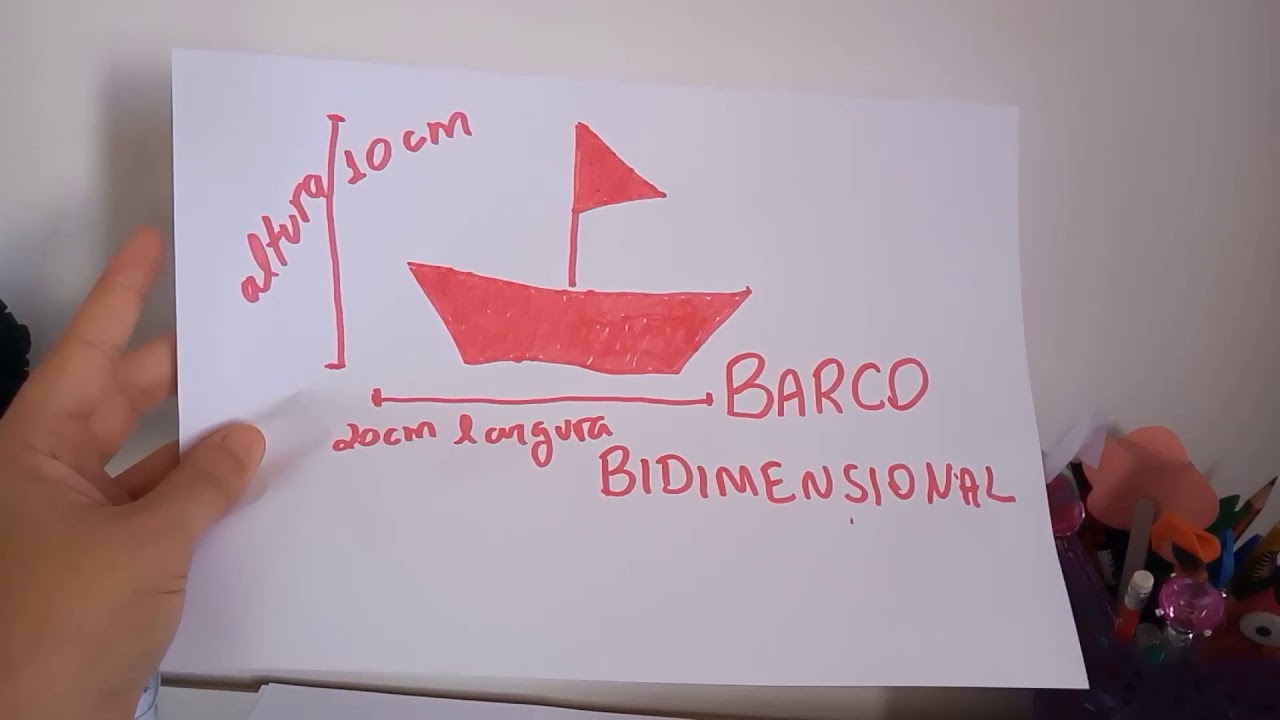 altura
10 cm
20cm largura
BARCO
BIDIMENSIONAL